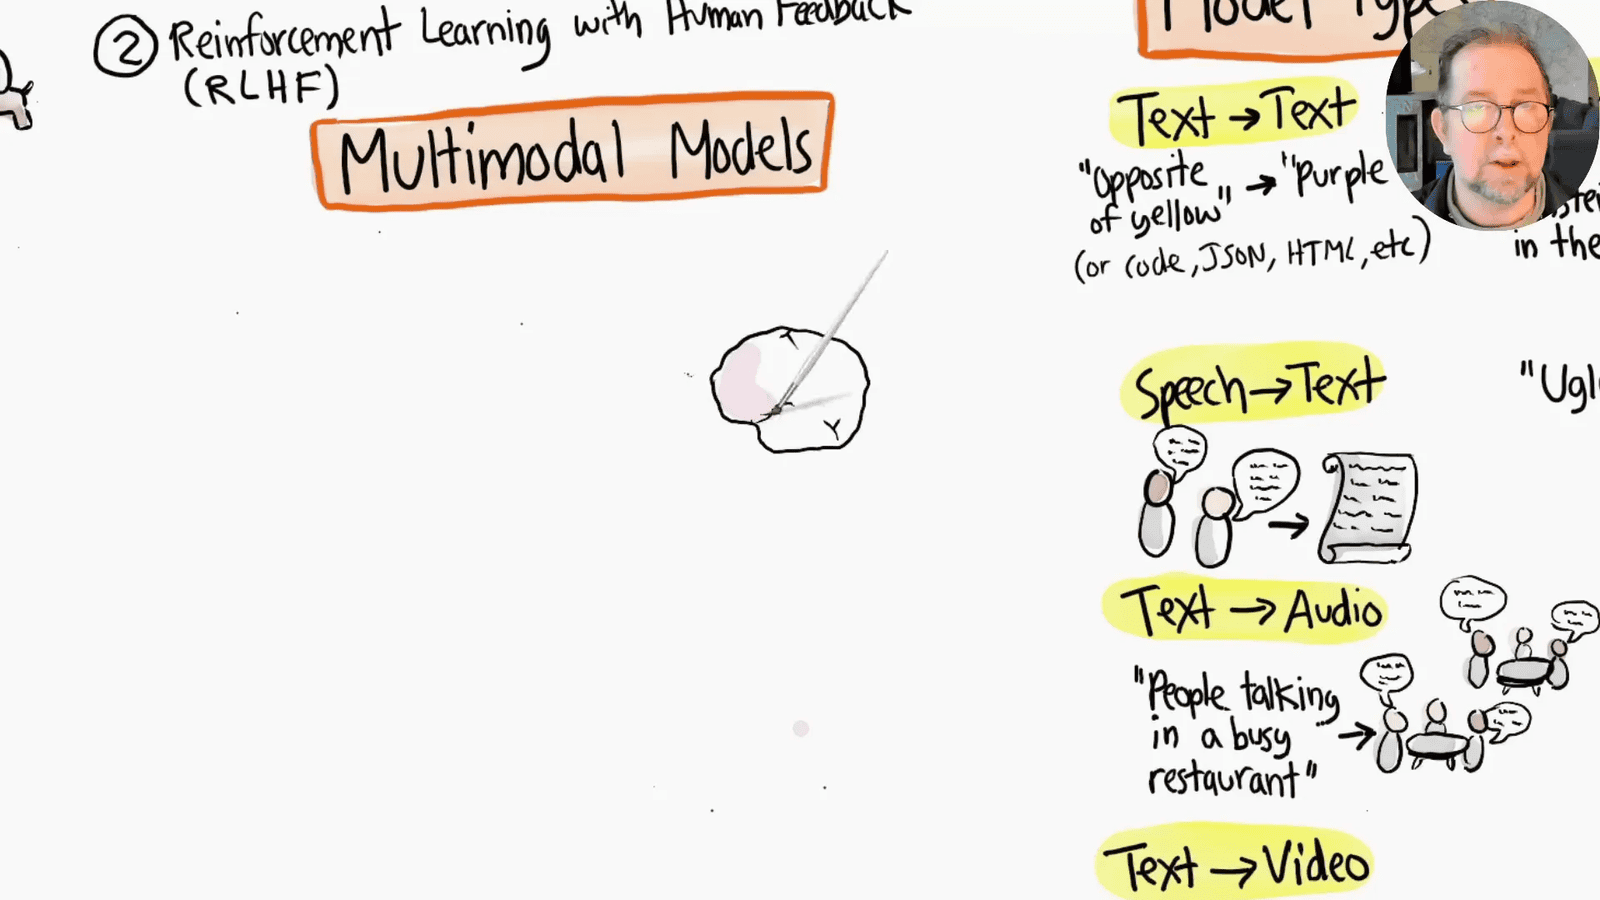 ② Reinforcement Learning with Human Feedback
(RLHF)
Multimodal Models
Model
Text → Text
"Opposite
of yellow" → "Purple
(or code, JSON, HTML, etc)
in the
Speech → Text
"Ugl
Text → Audio
"People talking
in a busy
restaurant" →
Text → Video